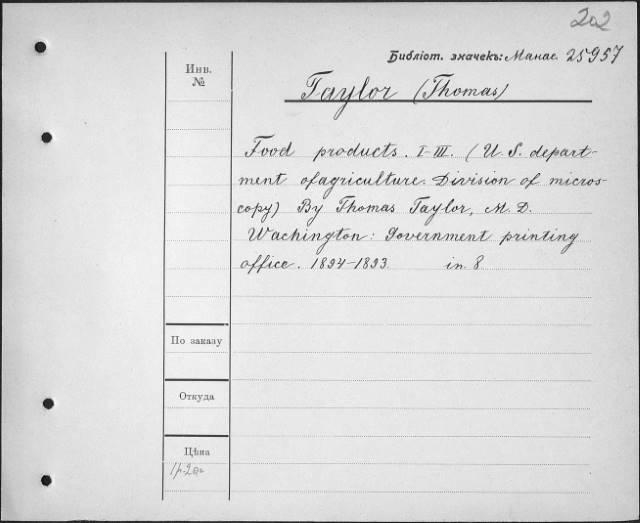 202
Библіот. значекъ: Манас. 25957
Инв.
№
Taylor (Thomas)
Food products. I-III. (U. S. depart-
ment of agriculture. Division of micros-
copy) By Thomas Taylor, M. D.
Wachington: Government printing
office. 1894-1893. in 8
По заказу
Откуда
Цѣна